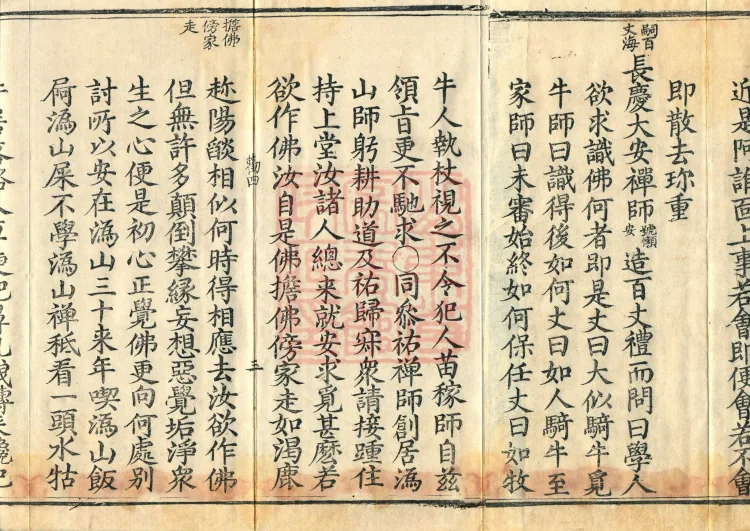 近是阿誰面上事若會即便會若不會
即散去珍重
嗣百丈海
長慶大安禪師號懶安造百丈禮而問曰學人
欲求識佛何者即是丈曰大似騎牛覓
牛師曰識得後如何丈曰如人騎牛至
家師曰未審始終如何保任丈曰如牧
牛人執杖視之不令犯人苗稼師自玆
領旨更不馳求○同叅祐禪師創居溈
山師躬耕助道及祐歸寂衆請接踵住
持上堂汝諸人總来就安求覓甚麽若
欲作佛汝自是佛擔佛傍家走如渴鹿
三
擔佛傍家走
趂陽燄相似何時得相應去汝欲作佛
但無許多顛倒攀緣妄想惡覺垢淨衆
生之心便是初心正覺佛更向何處別
討所以安在溈山三十来年喫溈山飯
屙溈山屎不學溈山禅秪看一頭水牯